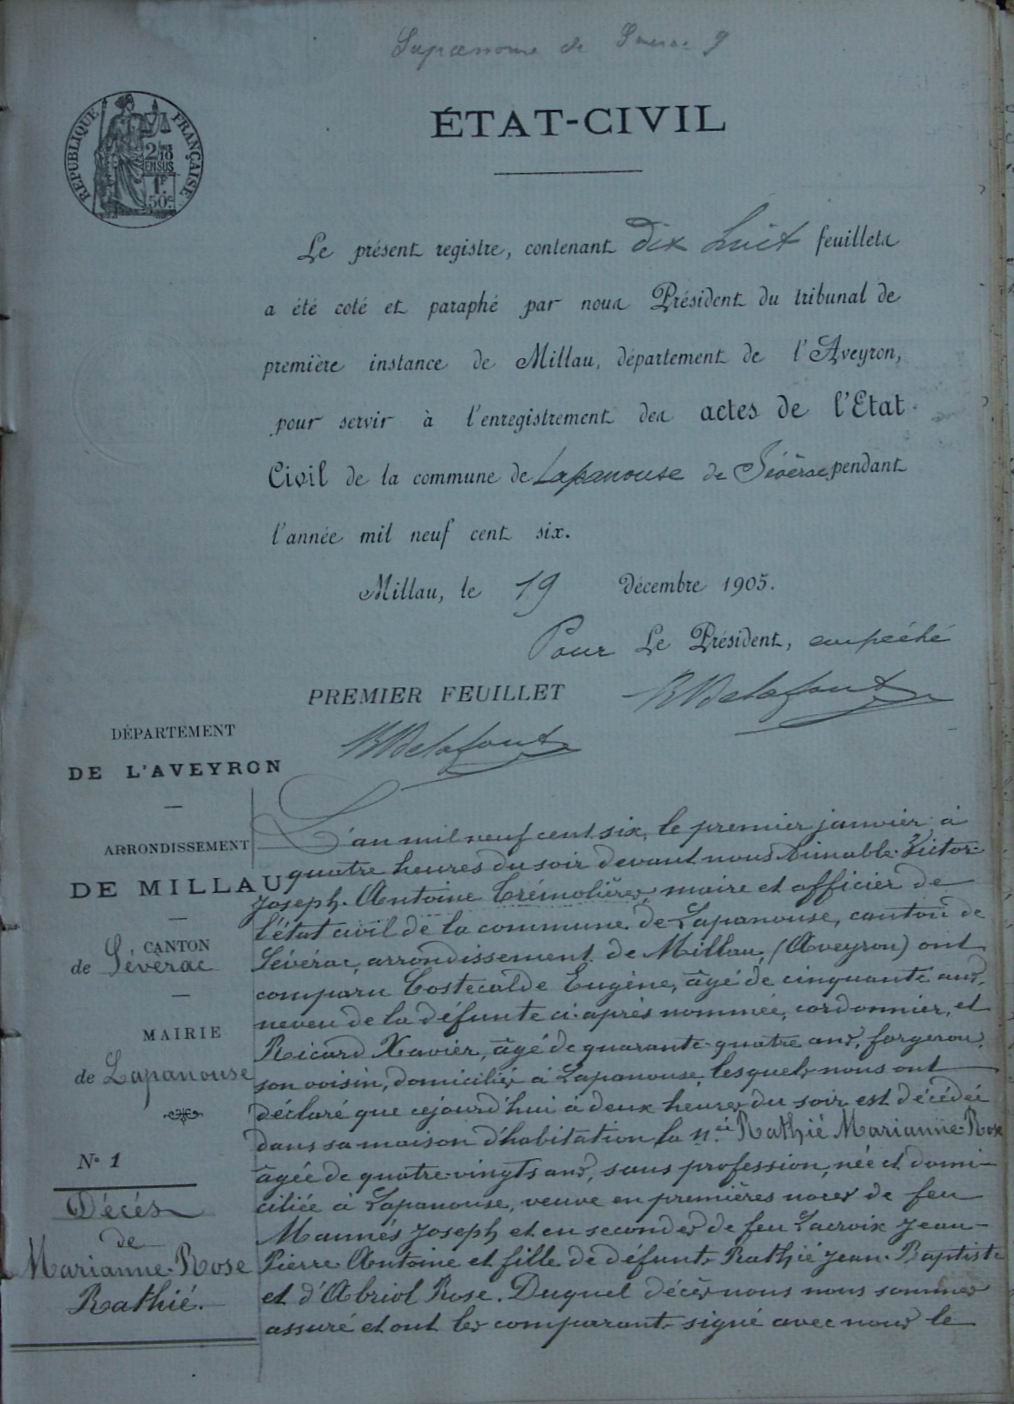 Lapanouse de
RÉPUBLIQUE FRANÇAISE
2/10
EN SUS
1F
50c
ÉTAT-CIVIL
Le présent registre, contenant dix huit feuillets
a été coté et paraphé par nous Président du tribunal de
première instance de Millau, département de l'Aveyron,
pour servir à l'enregistrement des actes de l'Etat
Civil de la commune de Lapanouse de Sévérac pendant
l'année mil neuf cent six.
Millau, le 19 décembre 1905.
Pour Le Président, empêché
PREMIER FEUILLET
DÉPARTEMENT
DE L'AVEYRON
ARRONDISSEMENT
DE MILLAU
CANTON
de Sévérac
MAIRIE
de Lapanouse
N° 1
Décès
de
Marianne-Rose
Rathié.
L'an mil neuf cent six, le premier janvier à
quatre heures du soir devant nous Aimable Victor
Joseph Antoine Trémolières, maire et officier de
l'état civil de la commune de Lapanouse, canton de
Sévérac, arrondissement de Millau, (Aveyron) ont
comparu Costecalde Eugène, âgé de cinquante ans,
neveu de la défunte ci-après nommée, cordonnier, et
Ricard Xavier, âgé de quarante-quatre ans, forgeron,
son voisin, domiciliés à Lapanouse, lesquels nous ont
déclaré que cejourd'hui à deux heures du soir est décédée
dans sa maison d'habitation la n.ée Rathié Marianne-Rose
âgée de quatre-vingts ans, sans profession, née et domi-
ciliée à Lapanouse, veuve en premières noces de feu
Maunés Joseph et en secondes de feu Lacroix Jean-
Pierre Antoine et fille de défunts Rathié Jean-Baptiste
et d'Abriol Rose. Duquel décès nous nous sommes
assuré et ont les comparants signé avec nous le